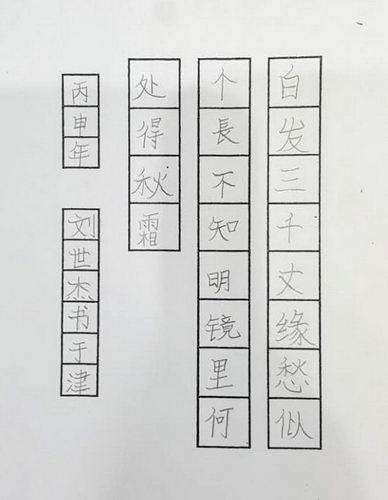 白发三千丈缘愁似
个長不知明镜里何
处得秋霜
丙申年
刘世杰书于津